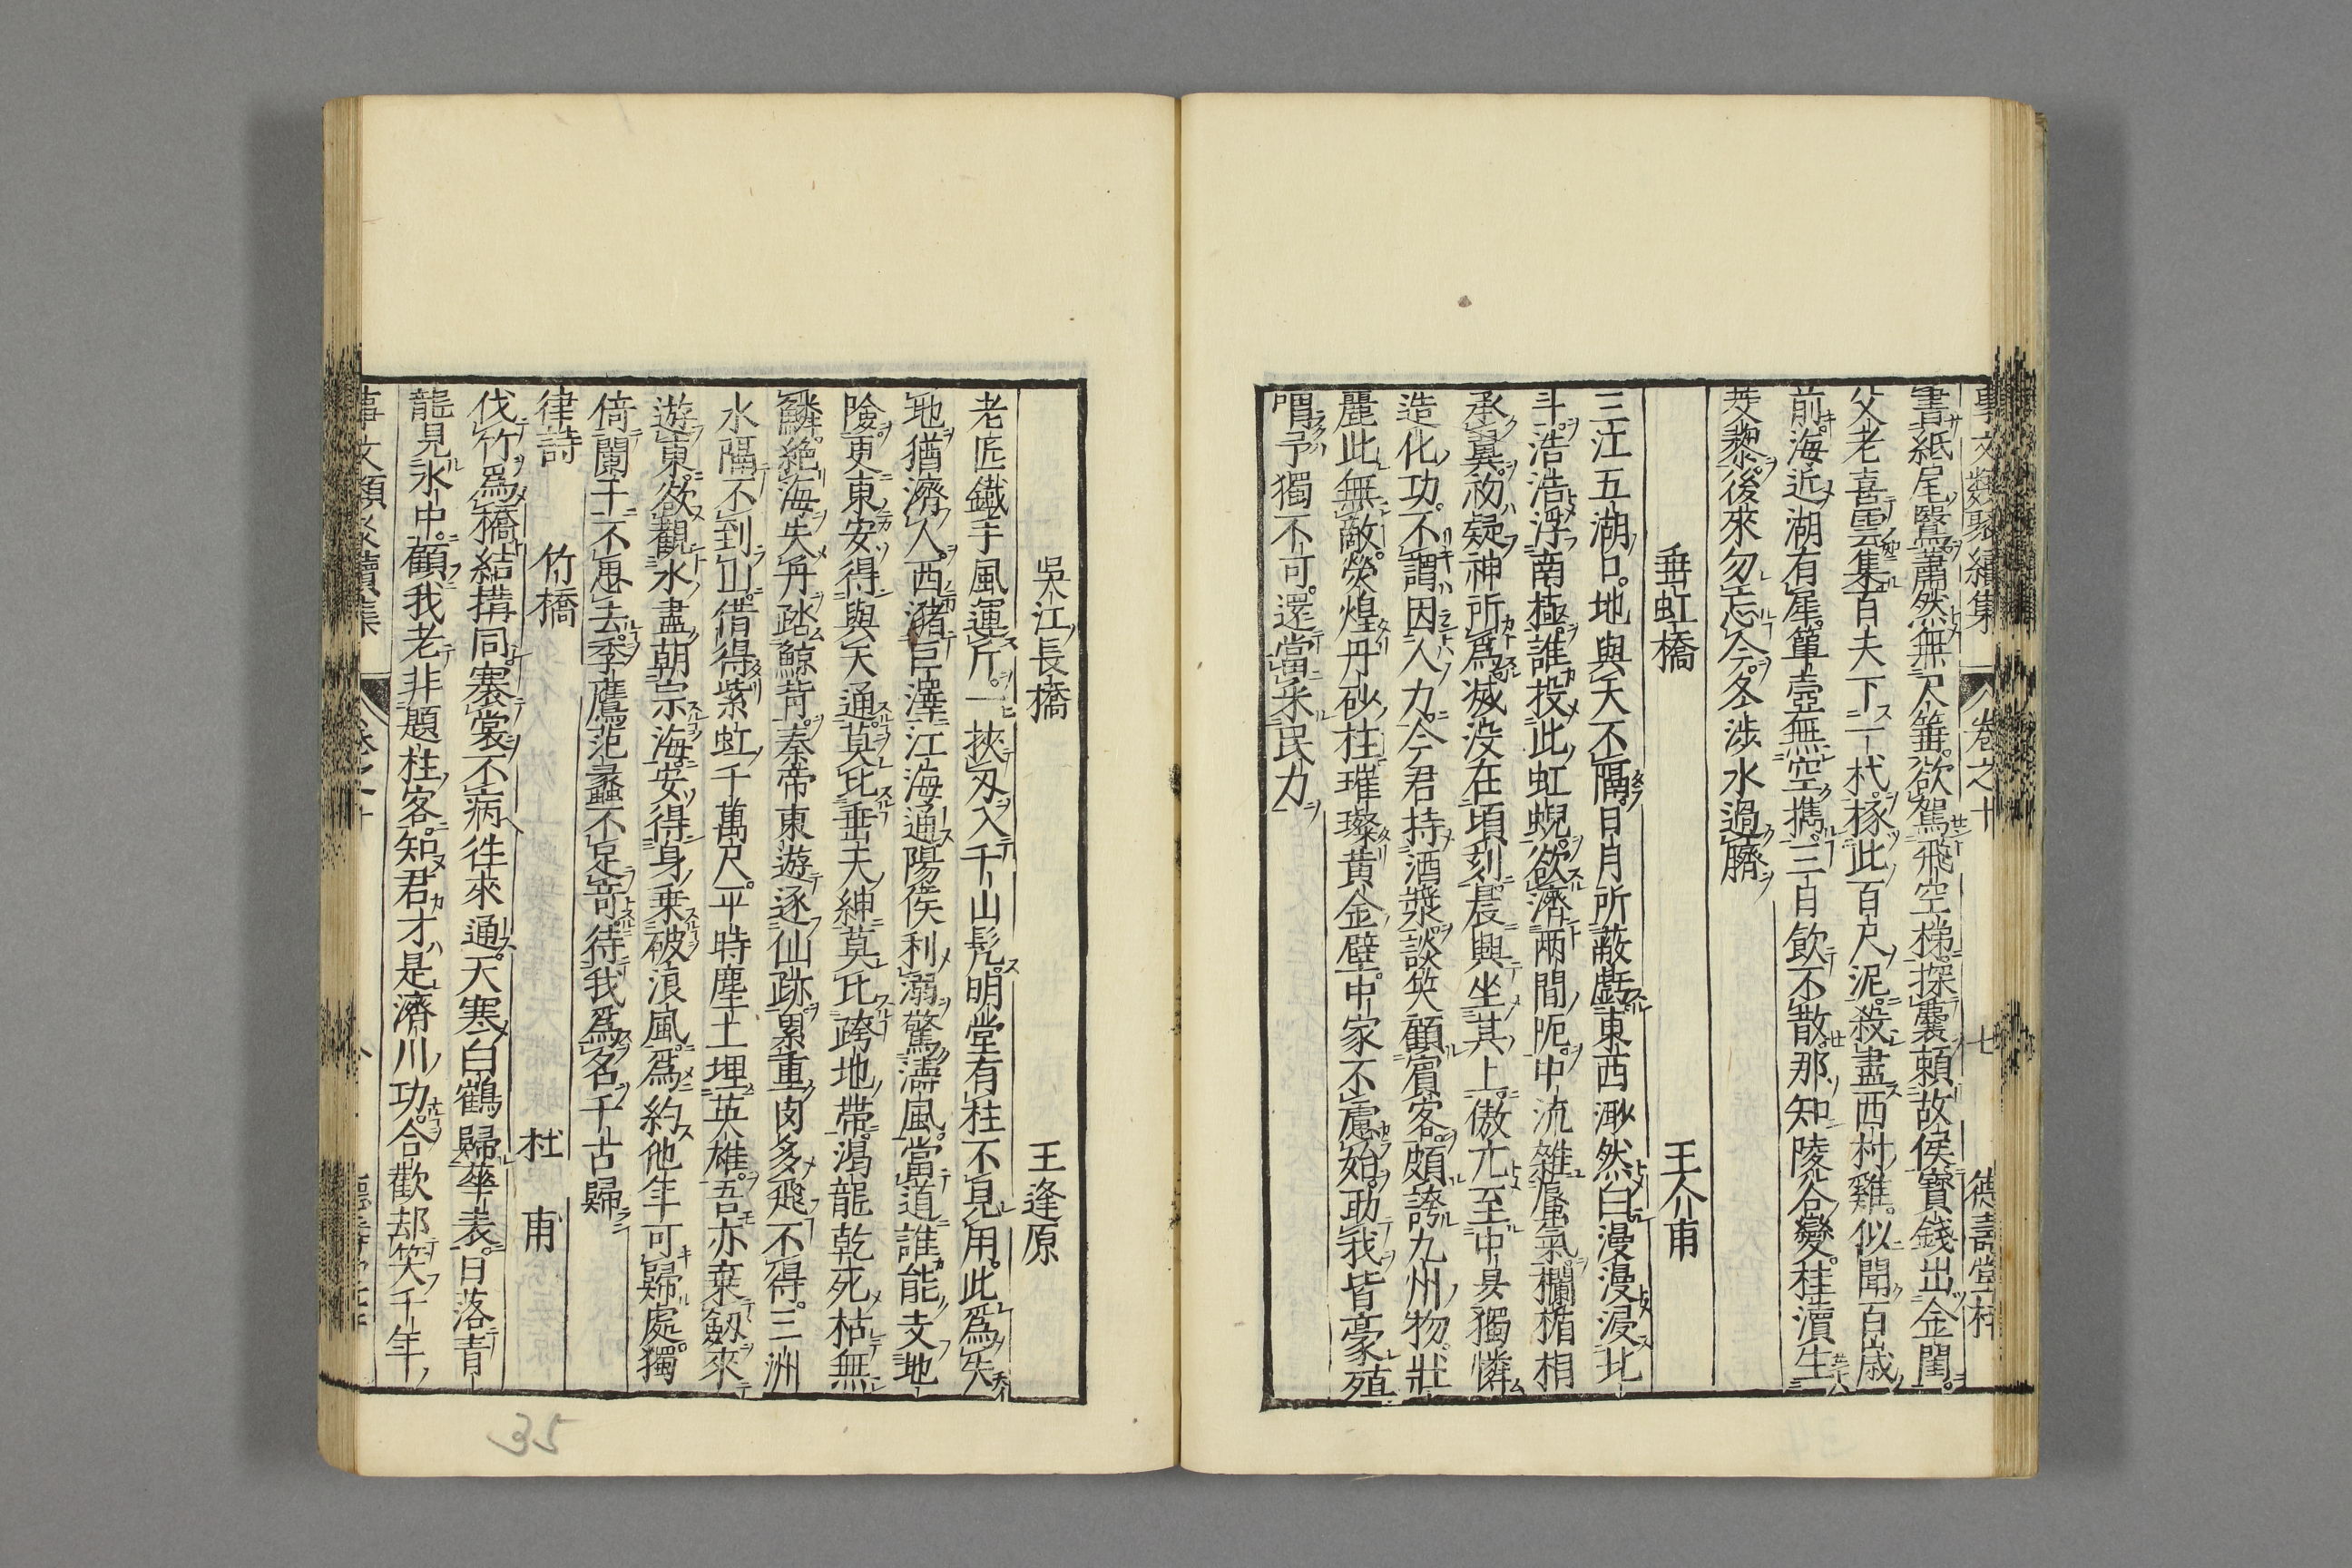 事文類聚續集 卷之十 七
書紙尾鷖蕭然無尺箠欲駕飛空梯探囊頼故侯寶錢出金閨
父老喜雲集百夫下一杙椓此百尺泥殺盡西村雞似聞百歲
前海近湖有犀簞壺無空攜三日飲不散那知陵谷變桂瀆生
茭藜後來勿忘今冬渉水過臍
垂虹橋 王介甫
三江五湖口地與天不隔日月所蔽虧東西渺然白漫漫浸北
斗浩浩浮南極誰投此虹蜺欲濟兩間阨中流雜蜃氣欄楯相
承翼初疑神所爲滅没在頃刻晨興坐其上傲兀至中昃獨憐
造化功不謂因人力今君持酒漿談笑顧賓客頗誇九州物壯
麗此無敵熒煌丹砂柱璀璨黄金壁中家不慮始助我皆豪殖
喟予獨不可還當采民力
吳江長橋 王逢原
老匠鐵手風運斤一挾刄入千山髡明堂有柱不見用此爲失
地猶濟人西瀦巨澤江海通陽侯利溺驚濤風當道誰能支地
險更東安得與天通莫比垂天紳莫比跨地帶渴龍乾死枯無
鱗絶海失舟踏鯨背秦帝東遊逐仙跡累重肉多飛不得三洲
水隔不到山借得紫虹千萬尺平時塵土埋英雄吾亦棄劔來
遊東欲觀水盡朝宗海安得身乗破浪風爲約他年可歸處獨
倚闌干不思去季鷹范蠡不足奇待我爲名千古歸
律詩
竹橋 杜甫
伐竹爲橋結搆同褰裳不病徃來通天寒白鶴歸華表日落青
龍見水中顧我老非題柱客知君才是濟川功合歡却笑千年
35